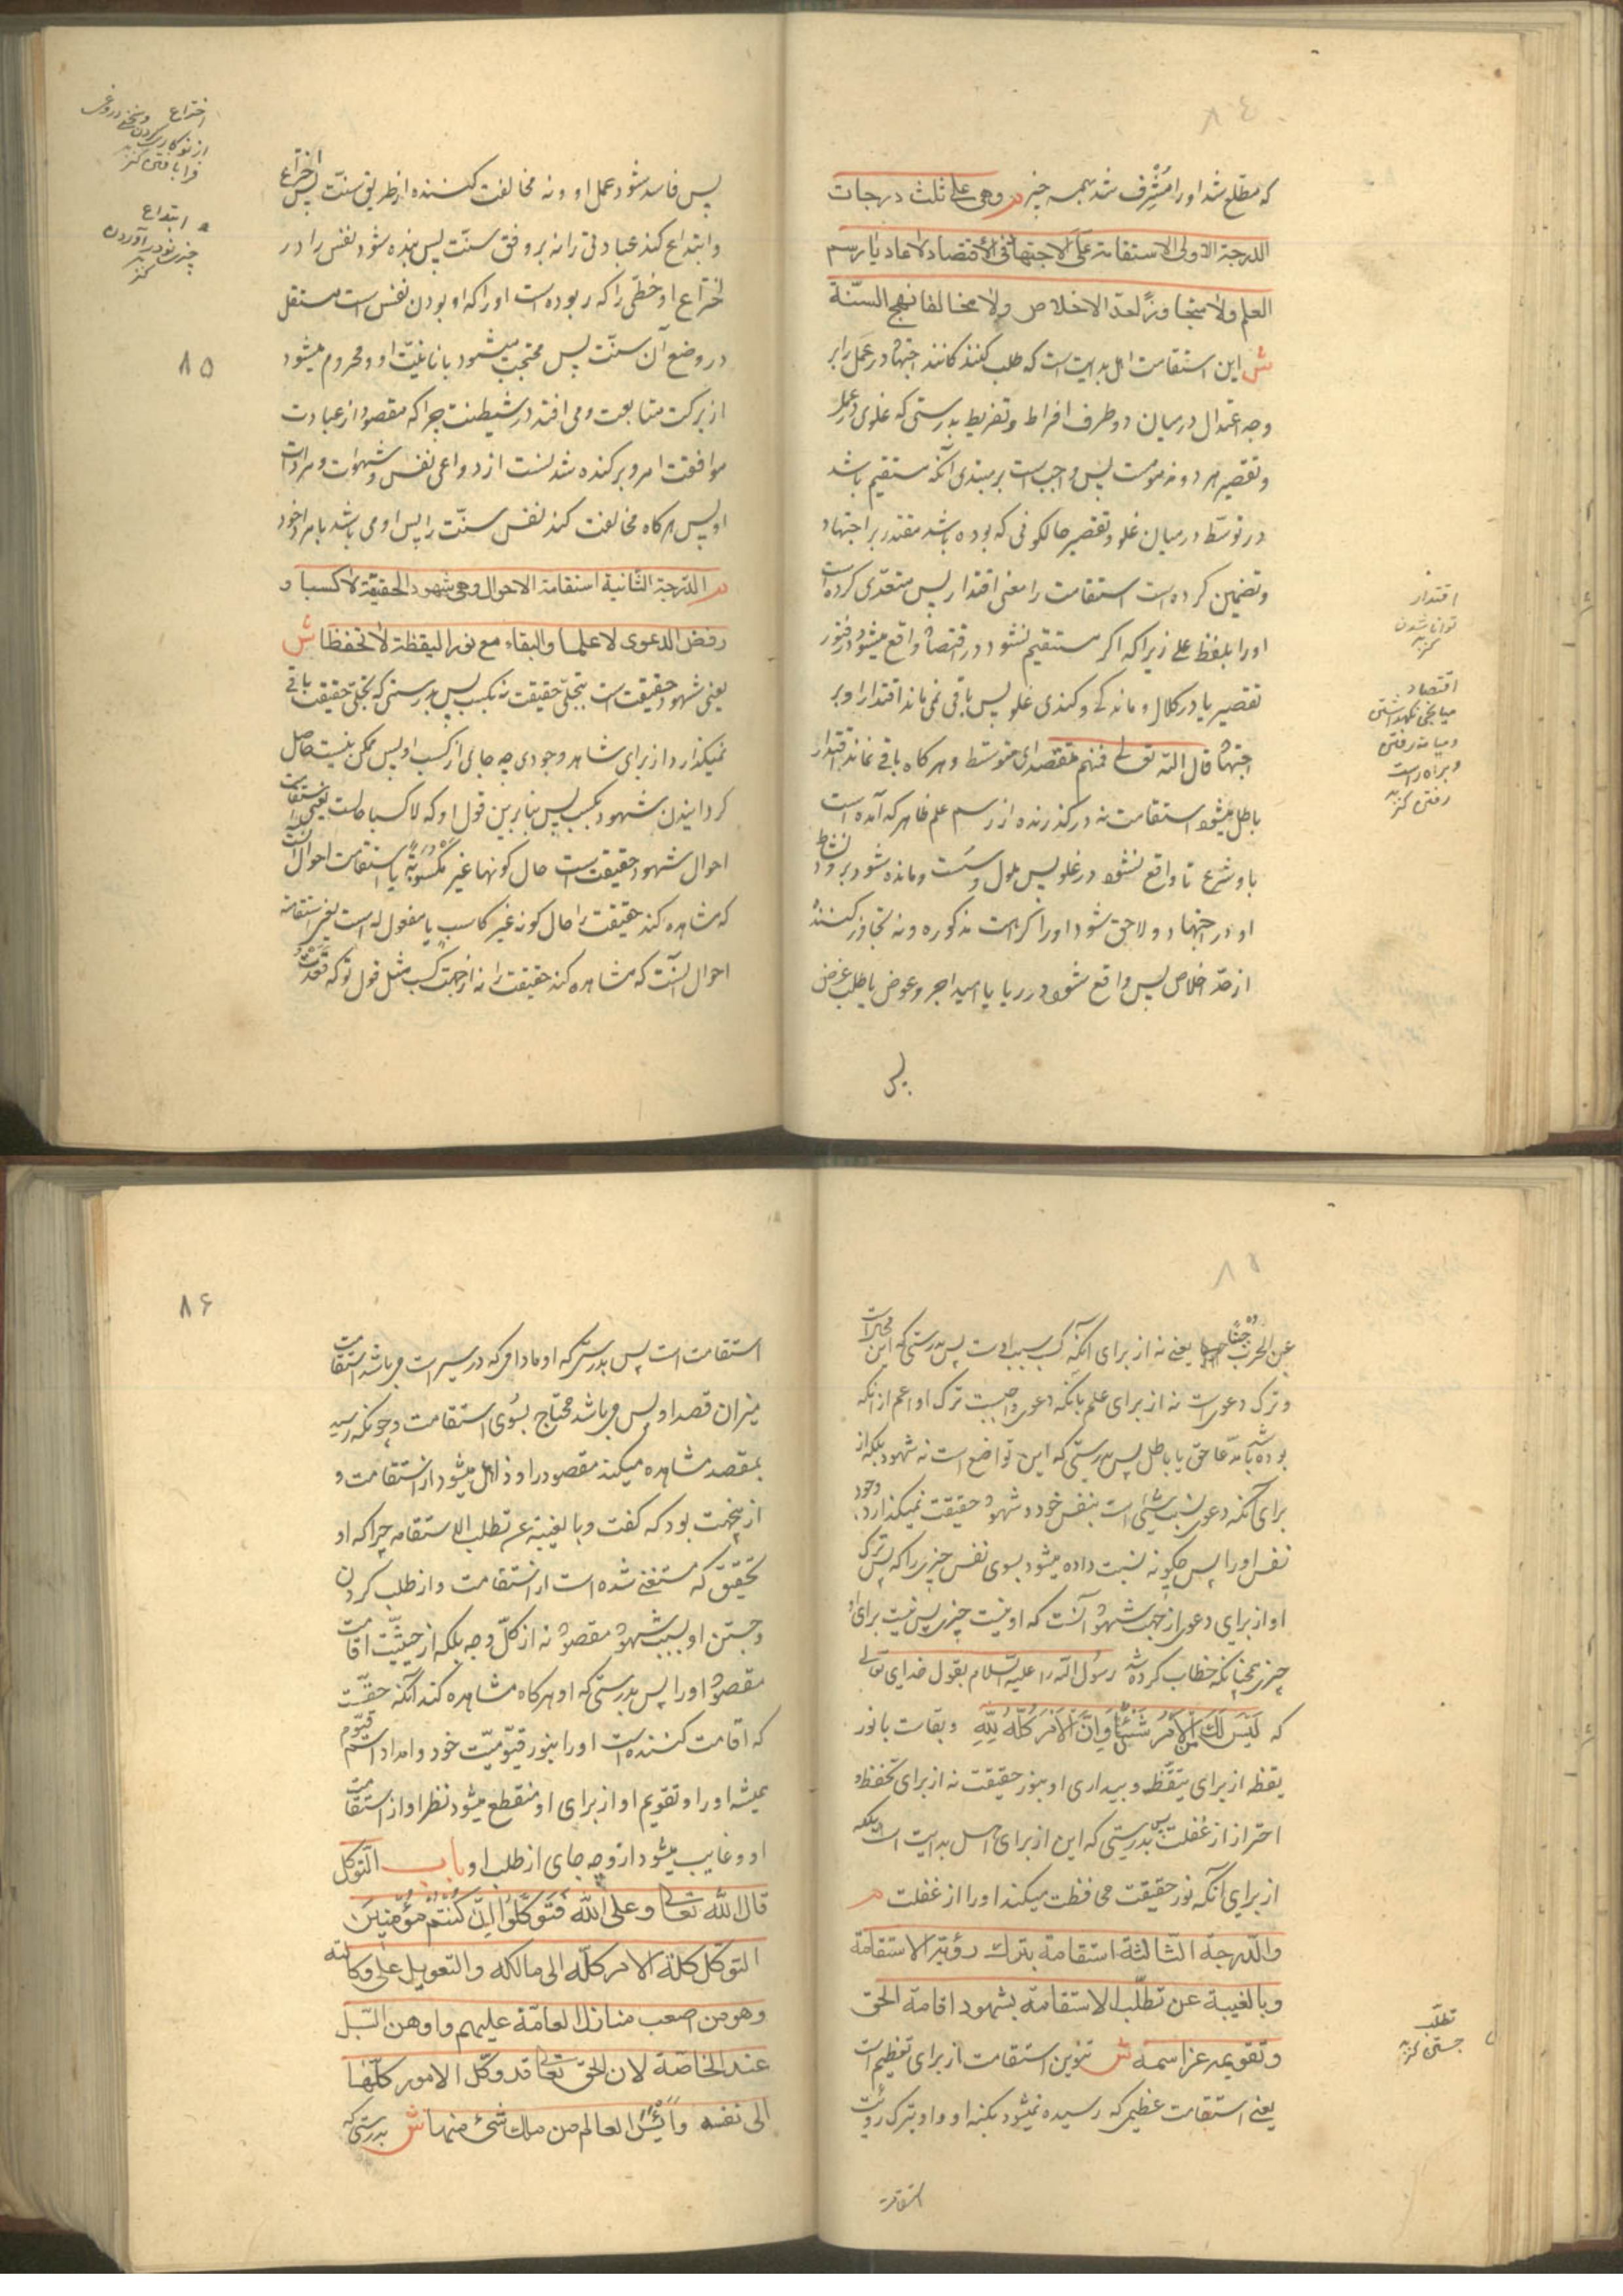 که مطلع شد او را مُشرِف شد بهمه چیز م وهی علی ثلث درجات
الدرجة الاولی الاستقامة علی الاجتهاد فی الاقتصاد لا عادیا رسم
العلم ولا متجاوزًا حدّ الاخلاص ولا مخالفا نهج السنّة
ش این استقامت اهل بدایت است که طلب کنند کانند اجتهاد در عمل را بر
وجه اعتدال در میان دو طرف افراط و تفریط بدرستی که غلوی در عمل
و تقصیر هر دو مذمومست پس واجب است بر مبتدی آنکه مستقیم باشد
در توسّط در میان غلو و تقصیر حالکونی که بوده باشد مقتدر بر اجتهاد
و تضمین کرده است استقامت را معنی اقتدار پس متعدّی کرده است
او را بلفظ علی زیرا که اکر مستقیم نشود در اقتصاد واقع میشود در فتور
تقصیر یا در کلال و ماندکی و کندی غلو پس باقی نمی ماند اقتدار او بر
اجتهاد قال الله تعالی فمنهم مقتصد ای متوسط و هر کاه باقی نماند اقتدار
باطل میشود استقامت نه در کذرنده از رسم علم ظاهر که آمده است
باو شرع تا واقع نشود در غلو پس ملول و سست و مانده شود برود نشاط
او در اجتهاد و لاحق شود او را کراهت مذکوره و نه تجاوز کننده
از حدّ اخلاص پس واقع شود در ریا یا امید اجر و عوض یا طلب غرض
پس
اقتدار
توانا شدن
کنز
اقتصاد
میانجی نکهداشتن
و میانه رفتن
و براه راست
رفتن کنز
پس فاسد شود عمل او و نه مخالفت کننده از طریق سنّت پس اختراع
و ابتداع کند عبادتی را نه بر وفق سنّت پس بنده شود نفس را در
اختراع او خطّی را که ربوده است او را که او بودن نفس است مستقل
در وضع آن سنّت پس محتجب میشود بانانیّت او و محروم میشود
از برکت متابعت و می افتد در شیطنت چرا که مقصود از عبادت
موافقت امر و برکنده شدنست از دواعی نفس و شهوات و مرادات
او پس هرکاه مخالفت کند نفس سنّت را پس او می باشد بامراد خود
م الدّرجة الثّانیة استقامة الاحوال وهی شهود الحقیقة لا کسبا و
رفض الدعوی لا علما والبقاء مع نور الیقظة لا تحفظا ش
یعنی شهود حقیقت است بتجلّی حقیقت نه بکسب پس بدرستی که تجلّی حقیقت باقی
نمیکذارد از برای شاهد وجودی چه جای از کسب او پس ممکن نیست حاصل
کردانیدن شهود بکسب پس بنابرین قول او که لا کسبا حالست یعنی استقامت
احوال شهود حقیقت است حال کونها غیر مکسوبة یا استقامت احوال آنست
که مشاهده کند حقیقت را حال کونه غیر کاسب یا مفعول له است یعنی استقامت
احوال آنست که مشاهده کند حقیقت را نه از جهت کسب مثل قول تو که قعدت
اختراع
از نو کاری کردن
فرا بافتن کنز
ابتداع
چیزی نو در آوردن
کنز
۸۵
عن الحرب جبنًا یعنی نه از برای آنکه کسب سبب اوست پس بدرستی که این
و ترک دعوی است نه از برای علم بانکه دعوی واجبست ترک او اعم از انکه
بوده باشد مدّعا حق یا باطل پس بدرستی که این تواضع است نه شهود بلکه از
برای آنکه دعوی نسبت شیئی است بنفس خود و شهود حقیقت نمیکذارد وجود
نفس او را پس چکونه نسبت داده میشود بسوی نفس چیزی را که پس ترک
او از برای دعوی از جهت شهود آنست که او نیست چیزی پس نیست برای او
چیزی همچنانکه خطاب کرده شد رسول الله را علیه السّلام بقول خدای تعالی
که لَیْسَ لَكَ مِنَ الْاَمْرِ شَیْءٌ وَاِنَّ الْاَمْرَ کُلَّهُ لِلّٰهِ و بقاست با نور
یقظه از برای تیقّظ و بیداری او بنور حقیقت نه از برای تحفّظ و
احتراز از غفلت پس بدرستی که این از برای اهل بدایت است بلکه
از برای آنکه نور حقیقت محافظت میکند او را از غفلت م
والدّرجة الثّالثة استقامة بترك رؤیة الاستقامة
وبالغیبة عن تطلّب الاستقامة بشهود اقامة الحق
وتقویمه عز اسمه ش تنوین استقامت از برای تعظیم است
یعنی استقامت عظیمی که رسیده نمیشود بکنه او و او بترک رؤیت
استقامت
تطلّب
جستن کنز
۸۶
استقامت است پس بدرستی که او مادامی که در سیر است می باشد استقامت
میزان قصد او پس می باشد محتاج بسوی استقامت و چونکه رسید
بمقصد مشاهده میکند مقصود را و ذاهل میشود از استقامت و
از ینجهت بود که کفت وبالغیبة عن تطلب الاستقامه چرا که او
بتحقیق که مستغنی شده است از استقامت و از طلب کردن
و جستن او بسبب شهود مقصود نه از کلّ وجه بلکه از حیثیّت اقامت
مقصود او را پس بدرستی که او هرکاه مشاهده کند آنکه حقست
که اقامت کننده است او را بنور قیّومیّت خود و امداد اسم قیّوم
همیشه او را و تقویم او از برای او منقطع میشود نظر او از استقامت
او و غایب میشود از و چه جای از طلب او باب التّوکل
قال الله تعالی وعلی الله فَتَوَکَّلُوا اِنْ کُنْتُمْ مُؤْمِنِینَ
التوکل کلة الامر کلّه الی مالکه والتعویل علی وکالته
وهو من اصعب منازل العامّة علیهم واوهن السّبل
عند الخاصّة لان الحق تعالی قد وکّل الامور کلّها
الی نفسه وایأس العالم من ملك شیء منها ش بدرستی که